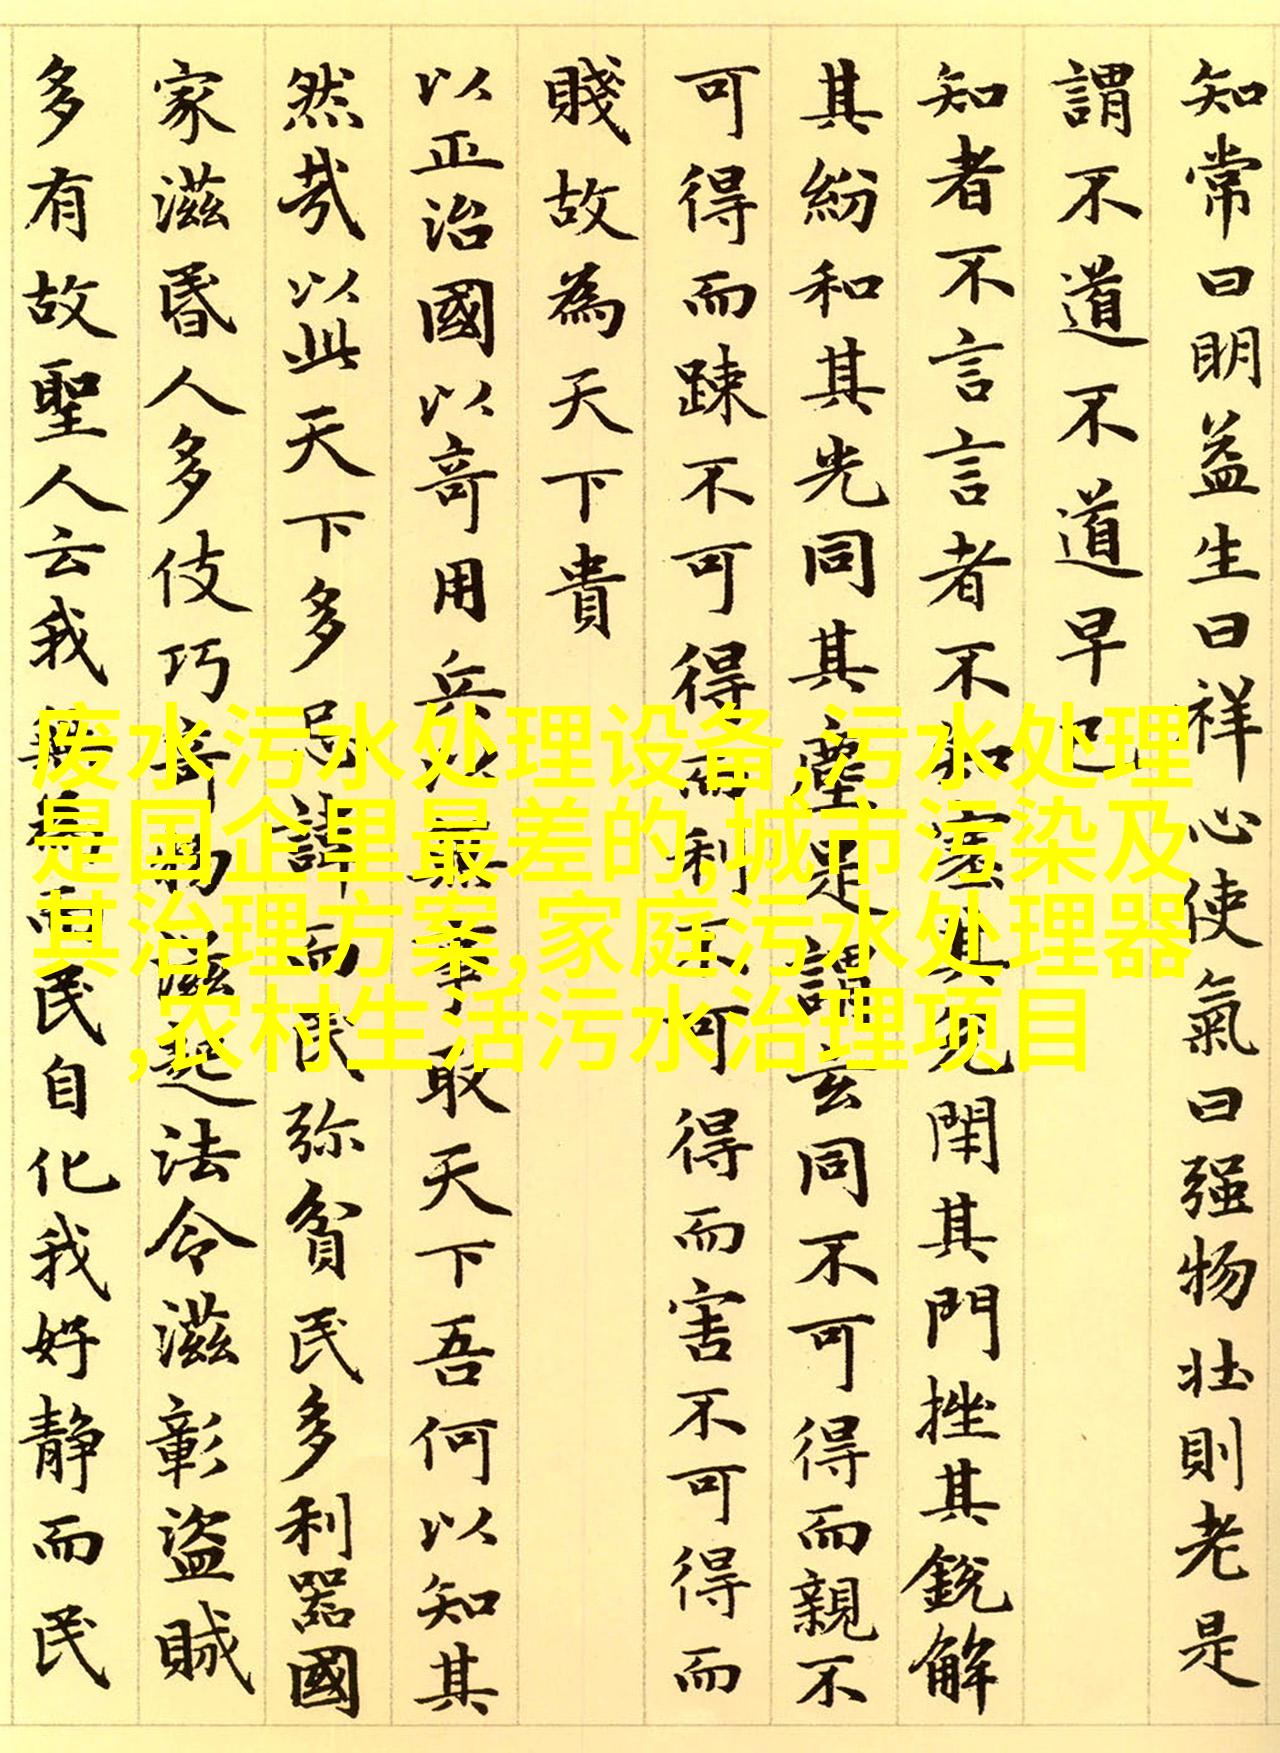 知常曰明益生曰祥心使氣曰强物壮則老是
謂不道不道早已
知者不言言者不知塞其兌閇其門挫其銳解
其紛和其光同其塵是謂玄同不可得而親不
可得而踈不可得而利不可得而害不可得而
賤故為天下貴
以正治國以奇用兵以無事取天下吾何以知其
然哉以此天下多忌諱而民弥貧民多利器國
家滋昬人多伎巧奇物滋起法令滋彰盗賊
多有故聖人云我無為而民自化我好静而民
废水污水处理设备,污水处理
是国企里最差的,城市污染及
其治理方案,家庭污水处理器
,农村生活污水治理项目